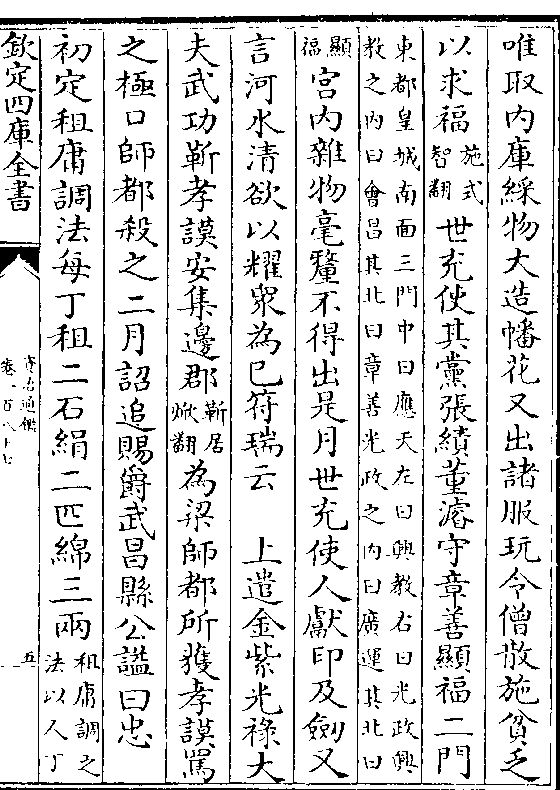 唯取內庫綵物大造幡花又出諸服玩令僧散施貧乏
以求福施式智翻世充使其黨張績董濬守章善顯福二門
東都皇城南面三門中曰應天左曰興教右曰光政興
教之內曰會昌其北曰章善光政之內曰廣運其北曰
顯福宮內雜物毫釐不得出是月世充使人獻印及劔又
言河水清欲以耀衆為已符瑞云　上遣金紫光祿大
夫武功靳孝謨安集邊郡靳居焮翻為梁師都所獲孝謨罵
之極口師都殺之二月詔追賜爵武昌縣公諡曰忠
初定租庸調法每丁租二石絹二匹綿三兩租庸調之法以人丁
欽定四庫全書
資治通鑑
卷一百八十七
五